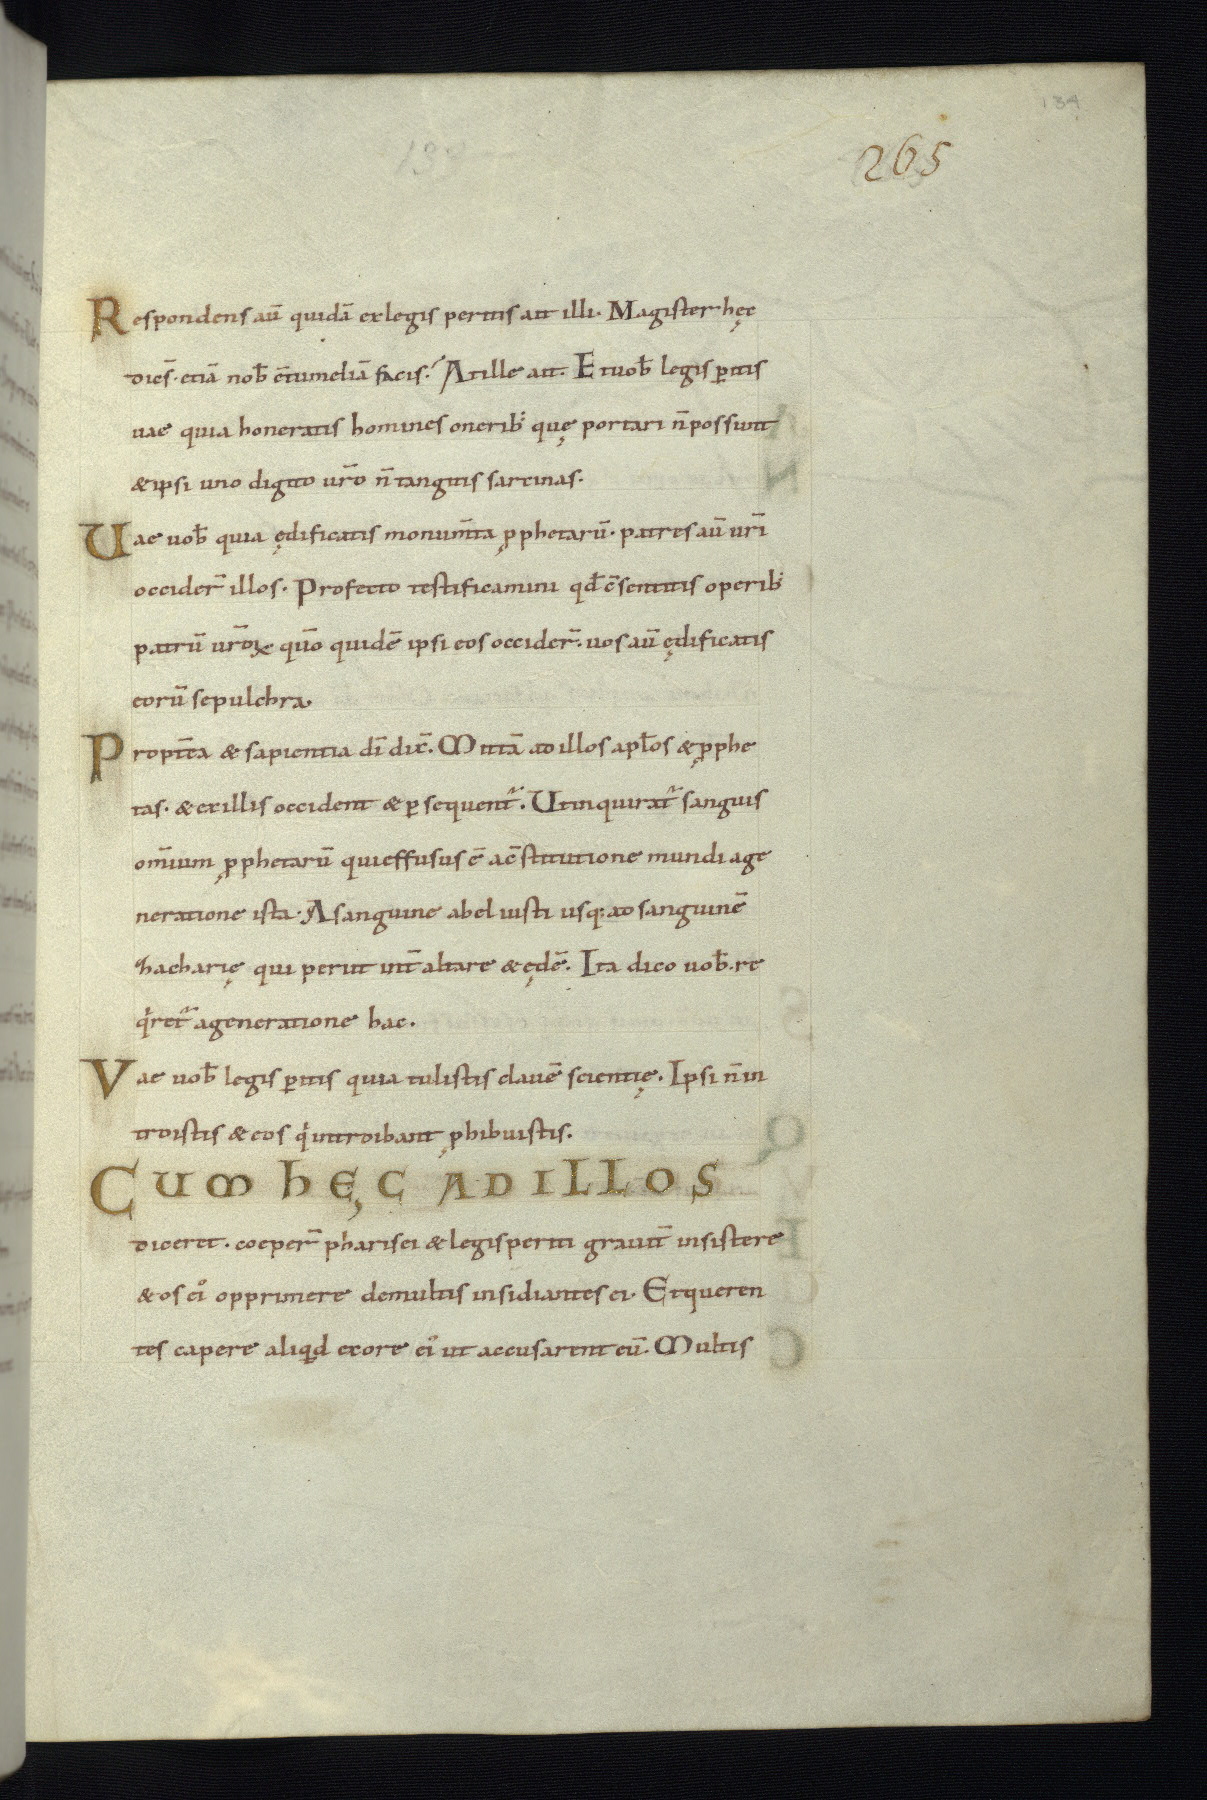 134
265
Respondens aū quidā ex legis peritis ait illi. Magister hęc
dicēs. etiā nob̄ c̄tumeliā facis? At ille ait. Et uob̄ legis ꝑitis
uae quia honeratis homines onerib; quę portari n̄ possunt
& ipsi uno digito ur̄o n̄ tangitis sarcinas.
Uae uob̄ quia ędificatis monum̄ta ꝓphetarū. patres aū ur̄i
occider̄ illos. Profecto testificamini qd̄ c̄sentitis operib;
patrū ur̄oꝝ qūo quidē ipsi eos occider̄. uos aū ędificatis
eorū sepulchra.
Propt̄ea & sapientia dī dix̄. Mittā ad illos apl̄os & ꝓphe
tas. & ex illis occident & ꝑsequent̄. Ut inquirat̄ sanguis
om̄ium ꝓphetarū qui effusus ē a c̄stitutione mundi a ge
neratione ista. A sanguine abel iusti usq; ad sanguinē
zacharię qui periit int̄ altare & ędē. Ita dico uob̄. re
qͥret̄ a generatione hac.
Vae uob̄ legis ꝑitis quia tulistis clauē scientię. Ipsi n̄ in
troistis & eos qͥ introibant ꝓhibuistis.
CUM HĘC AD ILLOS
diceret. coeper̄ pharisei & legis periti grauit̄ insistere
& os ei᾿ opprimere de multis insidiantes ei. Et queren
tes capere aliqͥd ex ore ei᾿ ut accusarent eū. Multis